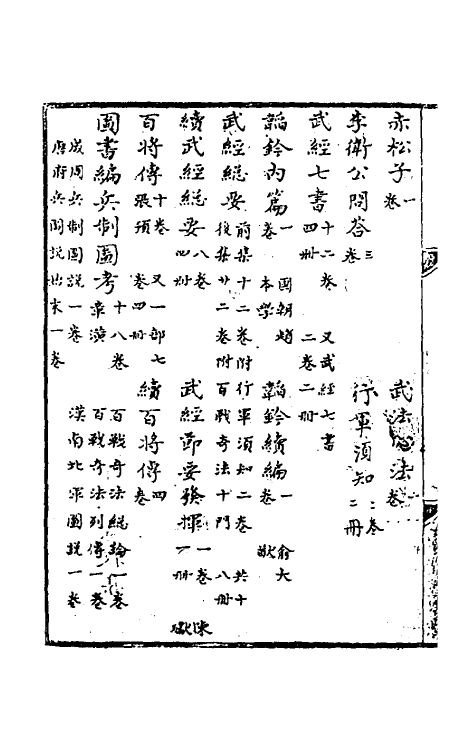 赤松子一卷 武法心法一卷
李衛公問答三卷 行軍須知二卷二冊
武經七書十二卷四冊 又武經七書二卷二冊
韜鈐內篇一卷 國朝趙本學 韜鈐續編一卷 俞大猷
武經總要前集十二卷附行軍須知二卷 共十
後集廿二卷附百戰奇法十門 八冊
續武經總要八卷四冊 武經節要發揮一卷一冊 陳猷
百將傳十卷張預 又一部七卷四冊 續百將傳四卷
圖書編兵制圖考十八卷章潢 百戰奇法總論一卷
百戰奇法列傳一卷
成周兵制圖說一卷 漢南北軍圖說一卷
唐府兵圖說出宋一卷